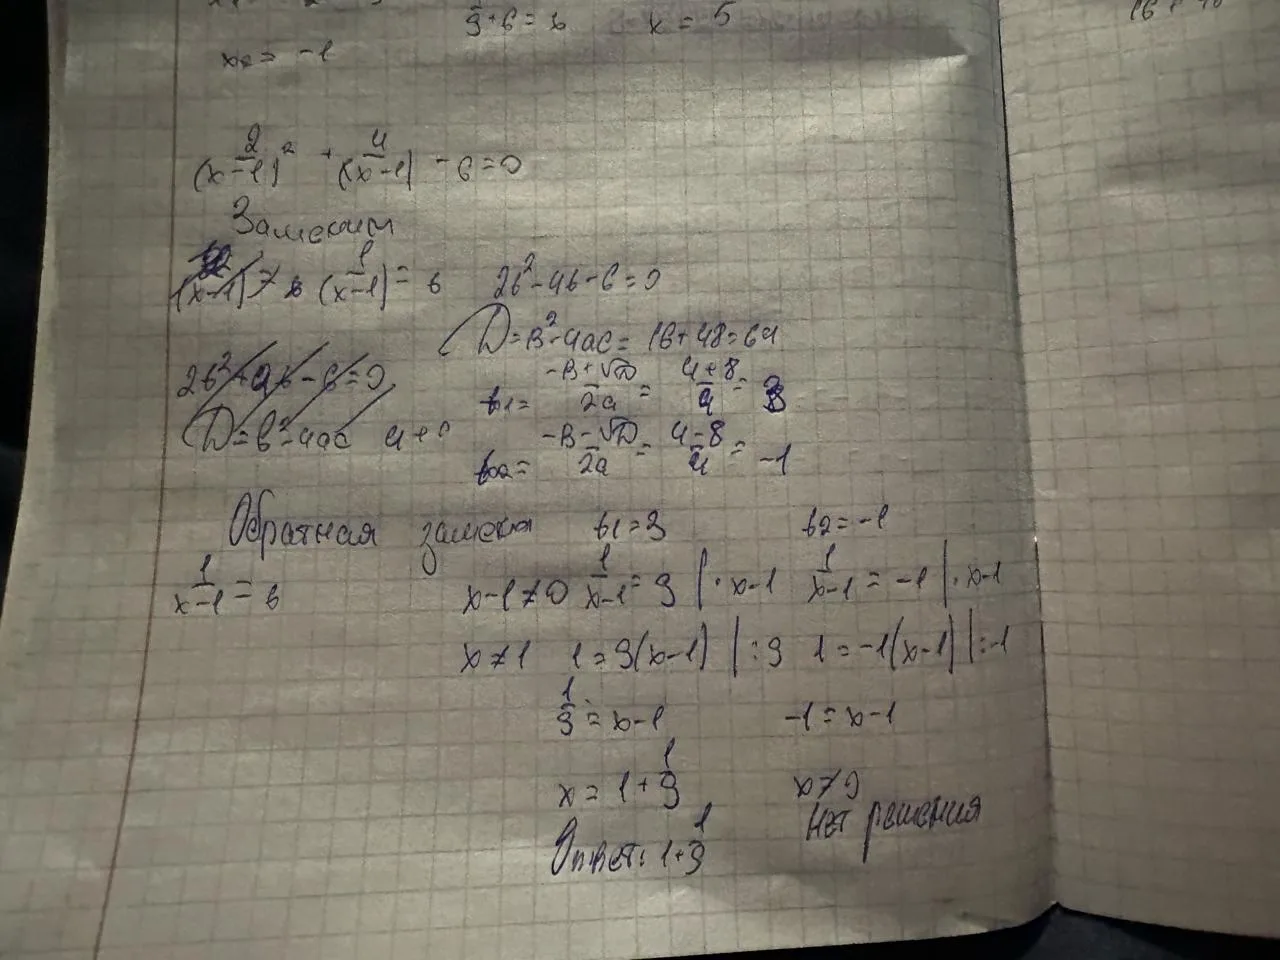 x₂ = -1
3 + 6 = x
x = 5
2/(x-1)² + 4/(x-1) - 6 = 0
Заменим
1/(x-1) = b
2b² - 4b - 6 = 0
2b² + 4b - 6 = 0
D = B² - 4ac = 16 + 48 = 64
D = b² - 4ac
b1 = (-B + √D)/2a = (4+8)/4 = 3
b2 = (-B - √D)/2a = (4-8)/4 = -1
Обратная замена b1 = 3 b2 = -1
1/(x-1) = b
x-1 ≠ 0 1/(x-1) = 3 | · x-1 1/(x-1) = -1 | · x-1
x ≠ 1 1 = 3(x-1) | :3 1 = -1(x-1) | :-1
1/3 = x-1 -1 = x-1
x = 1 + 1/3 x ≠ 0
Нет решения
Ответ: 1 + 1/3